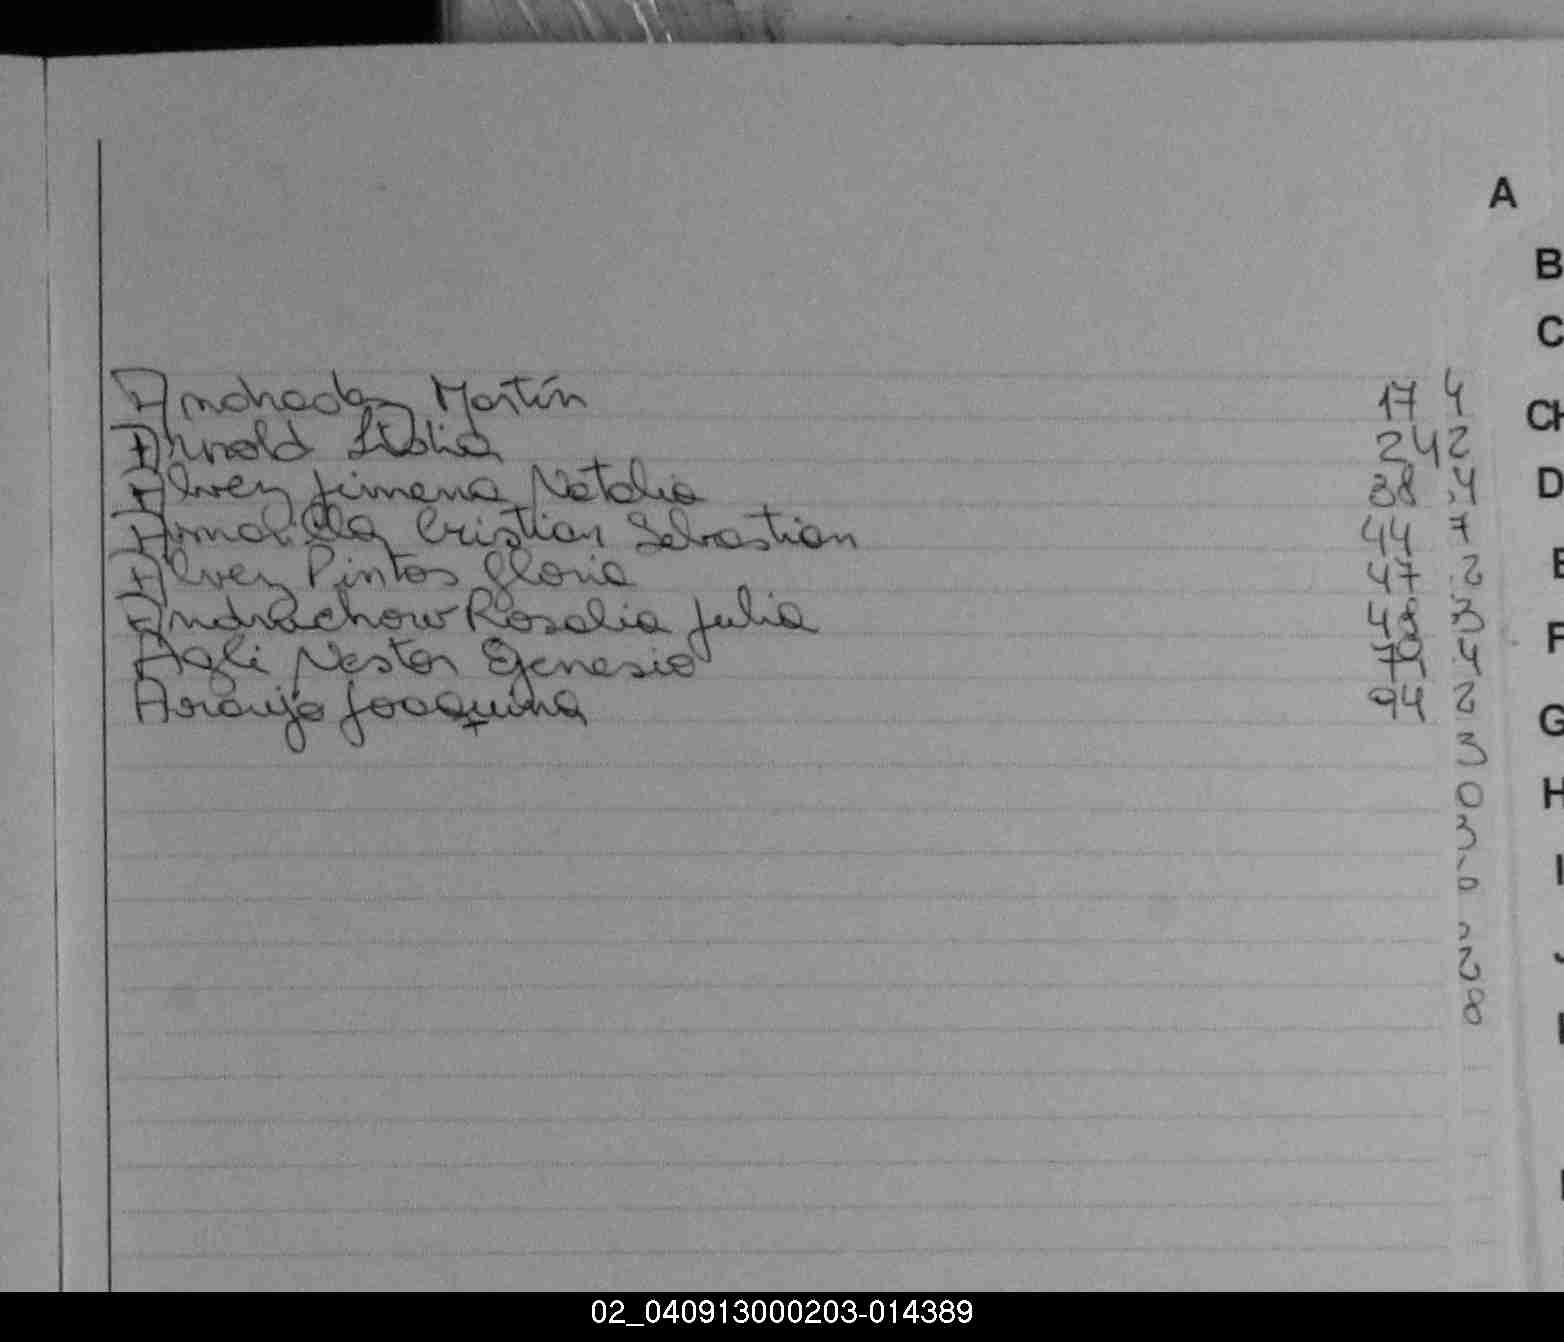 A
B
C
CH
D
E
F
G
H
I
J
Andrada Martín 17
Arnold Lidia 24
Alvez Jimena Natalia 38
Cristian Sebastian 44
Alvez Pintos Gloria 47
Andrachow Rosalia Julia 48
Agli Nestor Genesio
Araujo Joaquina 94
4
2
4
7
2
3
4
2
3
0
3
2
8
02_040913000203-014389